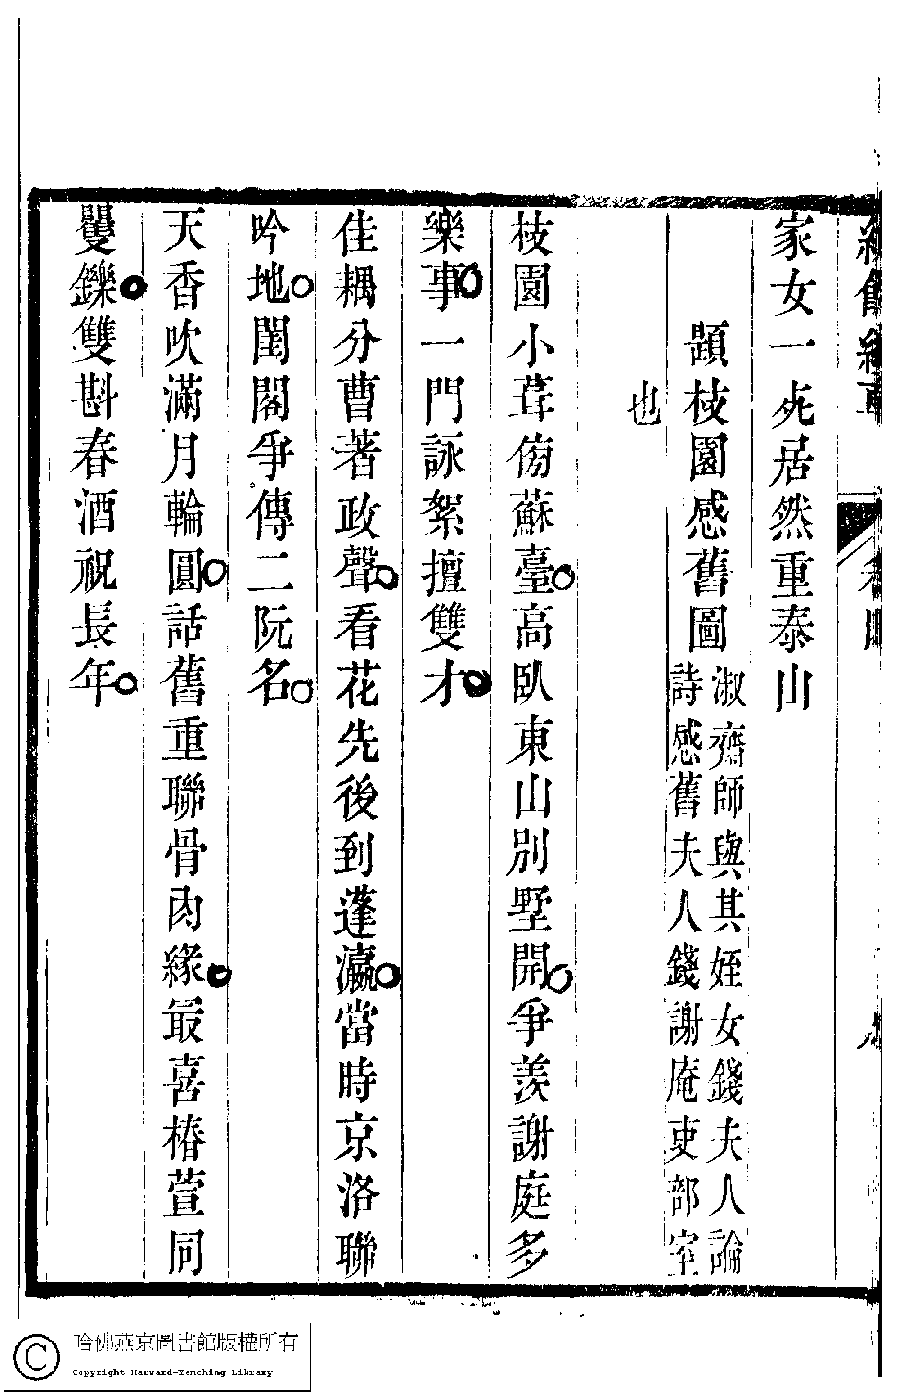 家女一死居然重泰山
題枝園感舊圖淑齋師與其姪女錢夫人論
詩感舊夫人錢謝庵吏部室
也
枝園小葺傍蘇臺高臥東山別墅開爭羨謝庭多
樂事一門詠絮擅雙才
佳耦分曹著政聲看花先後到蓬瀛當時京洛聯
吟地閨閣爭傳二阮名
天香吹滿月輪圓話舊重聯骨肉緣最喜椿萱同
矍鑠雙斟春酒祝長年
哈佛燕京圖書館版權所有
Copyright Harvard-Yenching Library